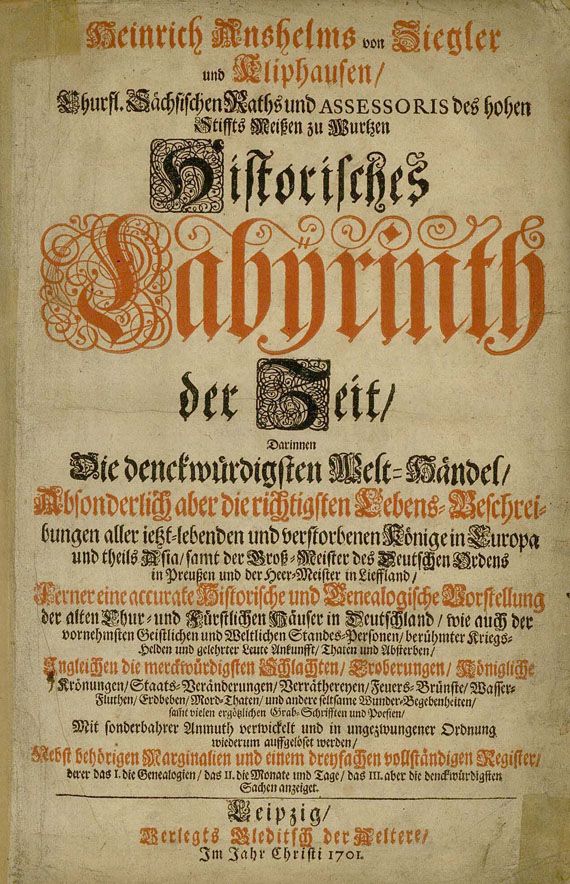 Heinrich Anshelms von Ziegler
und Kliphausen/
Churfl. Sächsischen Raths und ASSESSORIS des hohen
Stiffts Meißen zu Wurtzen
Historisches
Labyrinth
der Zeit/
Darinnen
Die denckwürdigsten Welt-Händel/
Absonderlich aber die richtigsten Lebens-Beschrei-
bungen aller ietzt-lebenden und verstorbenen Könige in Europa
und theils Asia/ samt der Groß-Meister des Deutschen Ordens
in Preußen und der Heer-Meister in Lieffland/
Ferner eine accurate Historische und Genealogische Vorstellung
der alten Chur- und Fürstlichen Häuser in Deutschland/ wie auch der
vornehmsten Geistlichen und Weltlichen Standes-Personen/ berühmter Kriegs-
Helden und gelehrter Leute Ankunfft/ Thaten und Absterben/
Ingleichen die merckwürdigsten Schlachten/ Eroberungen/ Königliche
Krönungen/ Staats-Veränderungen/ Verräthereyen/ Feuers-Brünste/ Wasser-
Fluthen/ Erdbeben/ Mord-Thaten/ und andere seltsame Wunder-Begebenheiten/
samt vielen ergötzlichen Grab-Schrifften und Poesien/
Mit sonderbahrer Anmuth verwickelt und in ungezwungener Ordnung
wiederum auffgelöset werden/
Nebst behörigen Marginalien und einem dreyfachen vollständigen Register/
derer das I. die Genealogien/ das II. die Monate und Tage/ das III. aber die denckwürdigsten
Sachen anzeiget.
Leipzig/
Verlegts Gleditsch der Aeltere/
Im Jahr Christi 1701.